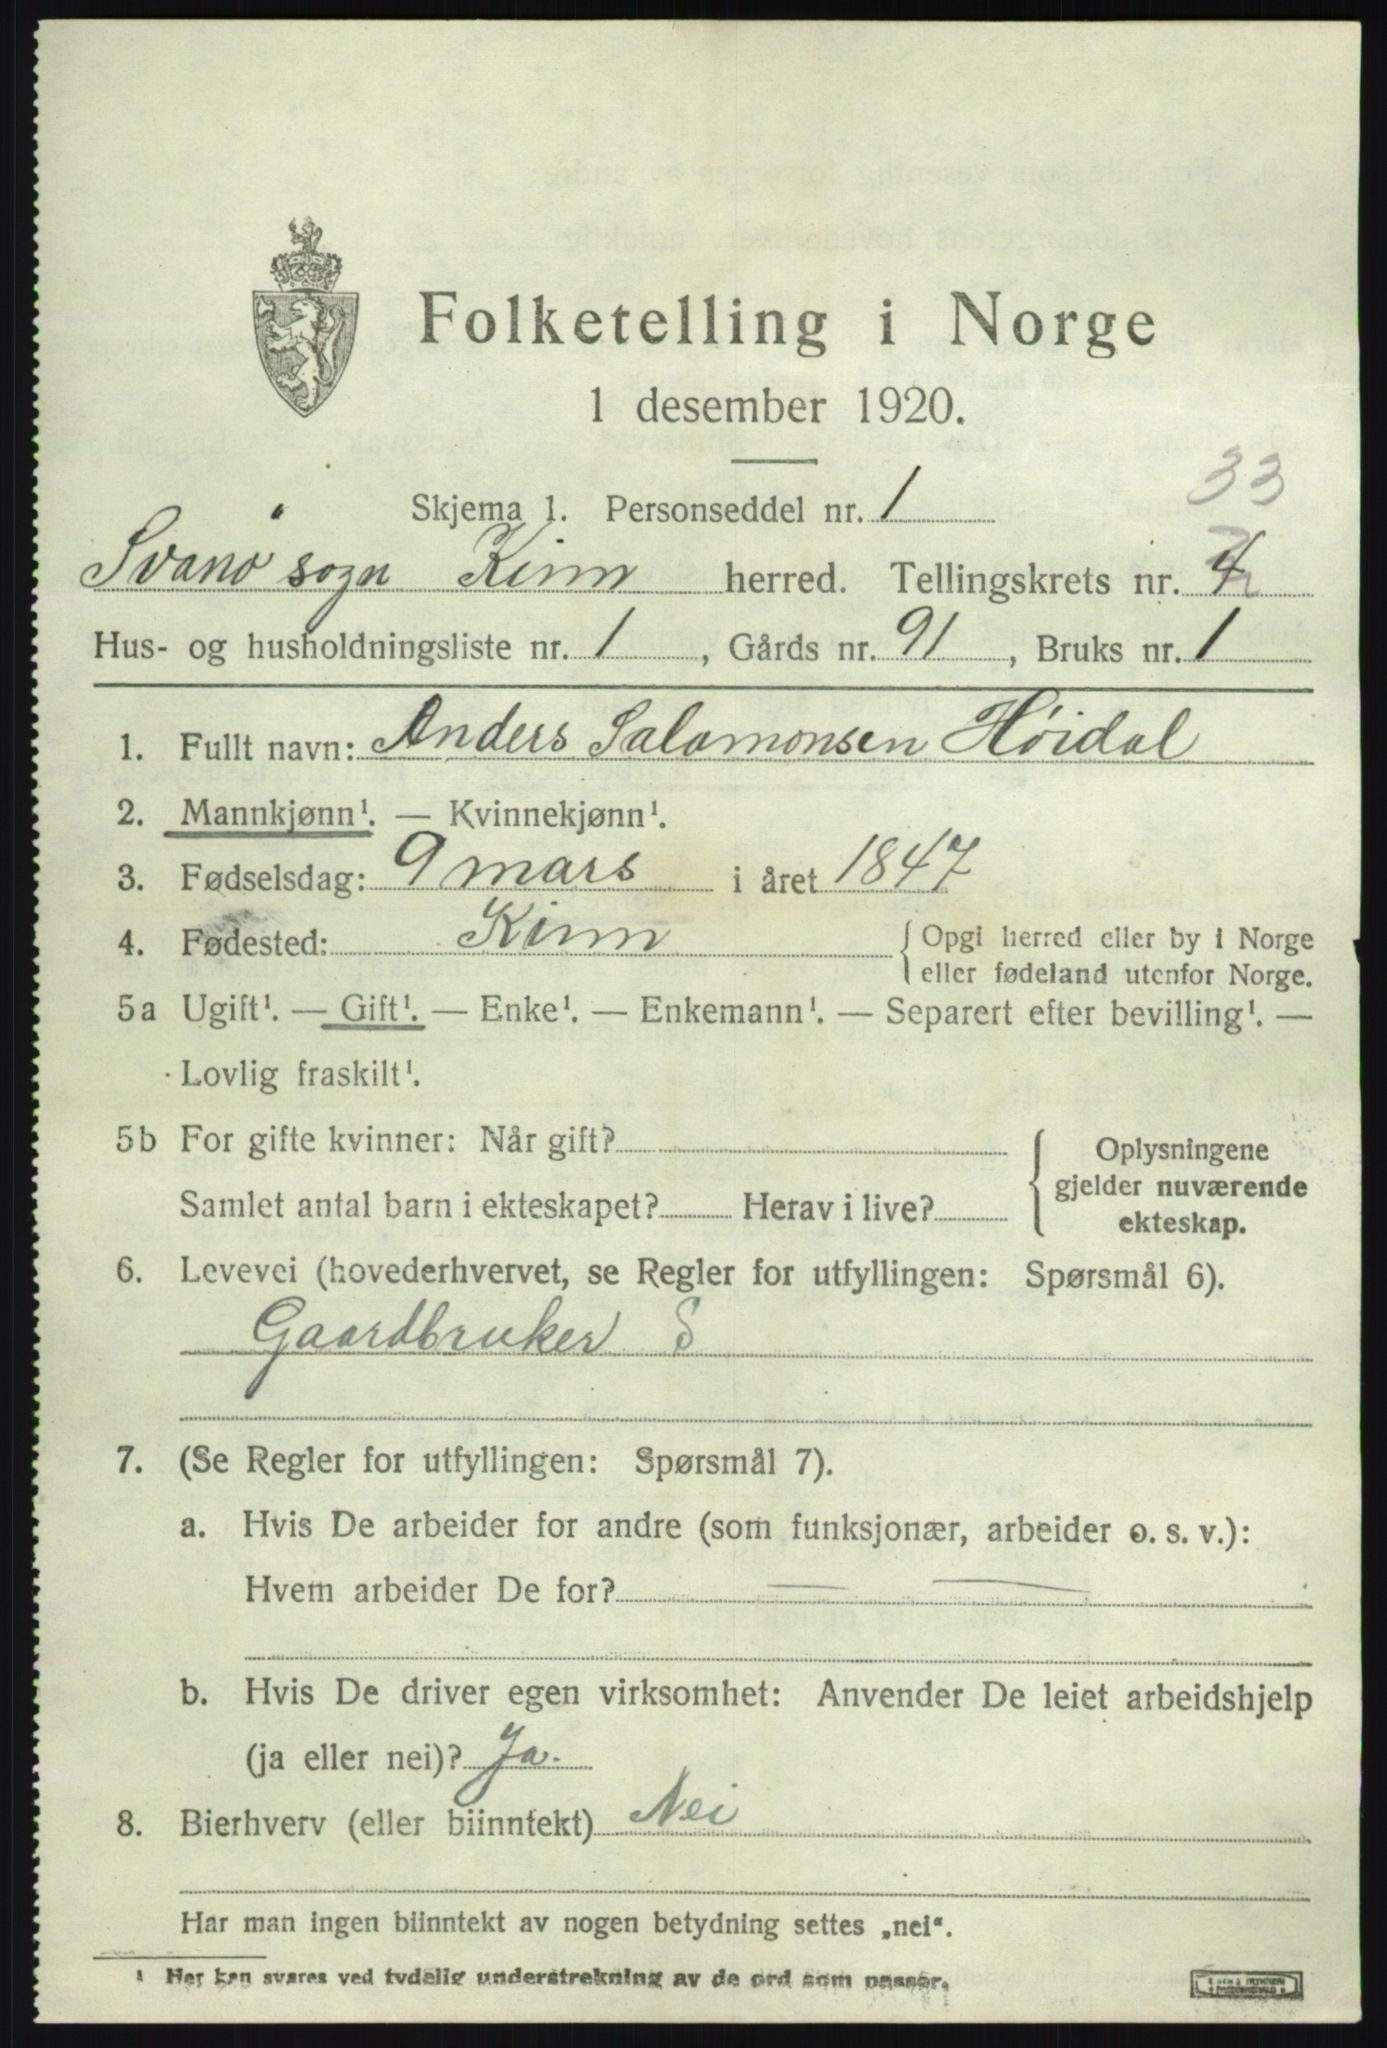 Folketelling i Norge
1 desember 1920.
33
Skjema 1. Personseddel nr. 1
Svanø sogn Kinn herred. Tellingskrets nr. 4
Hus- og husholdningsliste nr. 1, Gårds nr. 91, Bruks nr. 1
1. Fullt navn: Anders Salomonsen Høidal
2. Mannkjønn¹. — Kvinnekjønn¹.
3. Fødselsdag: 9 mars i året 1847
4. Fødested: Kinn { Opgi herred eller by i Norge
eller fødeland utenfor Norge.
5a Ugift¹. — Gift¹. — Enke¹. — Enkemann¹. — Separert efter bevilling¹. —
Lovlig fraskilt¹.
5b For gifte kvinner: Når gift?
Samlet antal barn i ekteskapet? Herav i live?
Oplysningene
gjelder nuværende
ekteskap.
6. Levevei (hovederhvervet, se Regler for utfyllingen: Spørsmål 6).
Gaardbruker S
7. (Se Regler for utfyllingen: Spørsmål 7).
a. Hvis De arbeider for andre (som funksjonær, arbeider o. s. v.):
Hvem arbeider De for? — —
b. Hvis De driver egen virksomhet: Anvender De leiet arbeidshjelp
(ja eller nei)? Ja.
8. Bierhverv (eller biinntekt) Nei
Har man ingen biinntekt av nogen betydning settes „nei“.
¹ Her kan svares ved tydelig understrekning av de ord som passer.